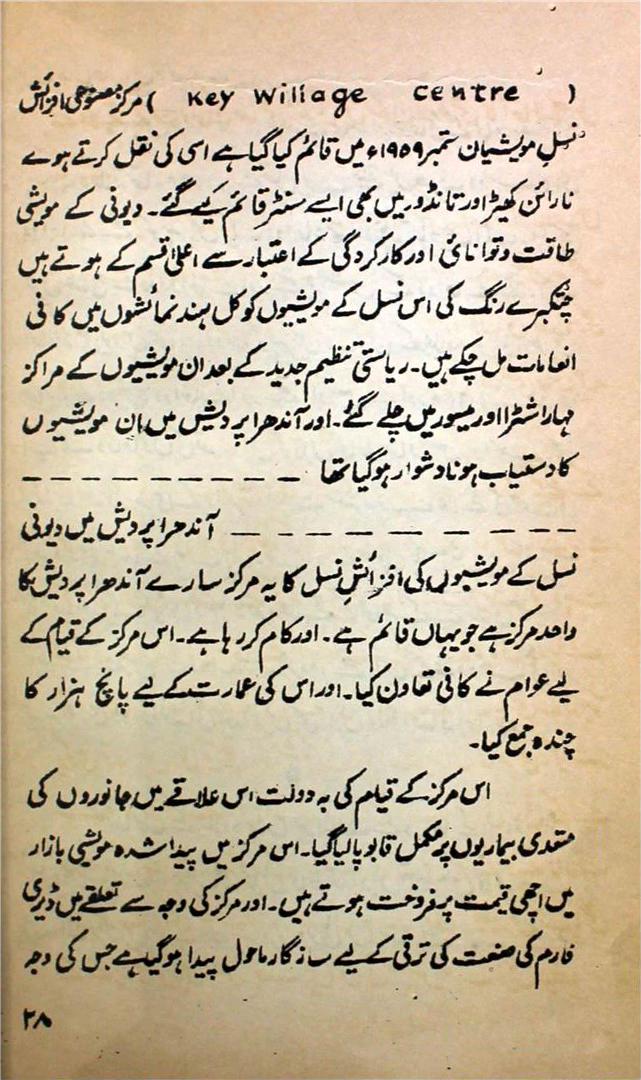 ( Key Willage centre ) مرکز مصنوعی افزائش
نسلِ مویشیان ستمبر ۱۹۵۹ء میں قائم کیا گیا ہے اسی کی نقل کرتے ہوے
نارائن کھیڑ اور تانڈور میں بھی ایسے سنٹر قائم کیے گئے۔ دیونی کے مویشی
طاقت و توانائی اور کارکردگی کے اعتبار سے اعلیٰ قسم کے ہوتے ہیں
چتکبرے رنگ کی اس نسل کے مویشیوں کو کل ہند نمائشوں میں کافی
انعامات مل چکے ہیں۔ ریاستی تنظیم جدید کے بعد ان مویشیوں کے مراکز
مہاراشٹرا اور میسور میں چلے گئے۔ اور آندھرا پردیش میں ان مویشیوں
کا دستیاب ہونا دشوار ہوگیا تھا ـ ـ ـ ـ ـ ـ ـ ـ ـ
ـ ـ ـ ـ ـ ـ ـ ـ آندھرا پردیش میں دیونی
نسل کے مویشیوں کی افزائشِ نسل کا یہ مرکز سارے آندھرا پردیش کا
واحد مرکز ہے جو یہاں قائم ہے۔ اور کام کر رہا ہے۔ اس مرکز کے قیام کے
لیے عوام نے کافی تعاون کیا۔ اور اس کی عمارت کے لیے پانچ ہزار کا
چندہ جمع کیا۔
اس مرکز کے قیام کی بہ دولت اس علاقے میں جانوروں کی
متعدی بیماریوں پر مکمل قابو پالیا گیا۔ اس مرکز میں پیدا شدہ مویشی بازار
میں اچھی قیمت پر فروخت ہوتے ہیں۔ اور مرکز کی وجہ سے تعلقے میں ڈیری
فارم کی صنعت کی ترقی کے لیے سازگار ماحول پیدا ہوگیا ہے جس کی وجہ
۲۸